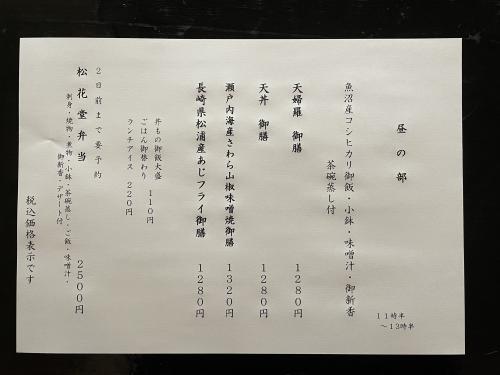 昼の部
11時半
～13時半
魚沼産コシヒカリ御飯・小鉢・味噌汁・御新香
茶碗蒸し付
天婦羅 御膳 1280円
天丼 御膳 1280円
瀬戸内海産さわら山椒味噌焼御膳 1320円
長崎県松浦産あじフライ御膳 1280円
丼もの御飯大盛 110円
ごはん御替わり
ランチアイス 220円
2日前まで要予約
松花堂弁当 2500円
刺身・焼物・煮物・小鉢・茶碗蒸し・ご飯・味噌汁・
御新香・デザート付
税込価格表示です